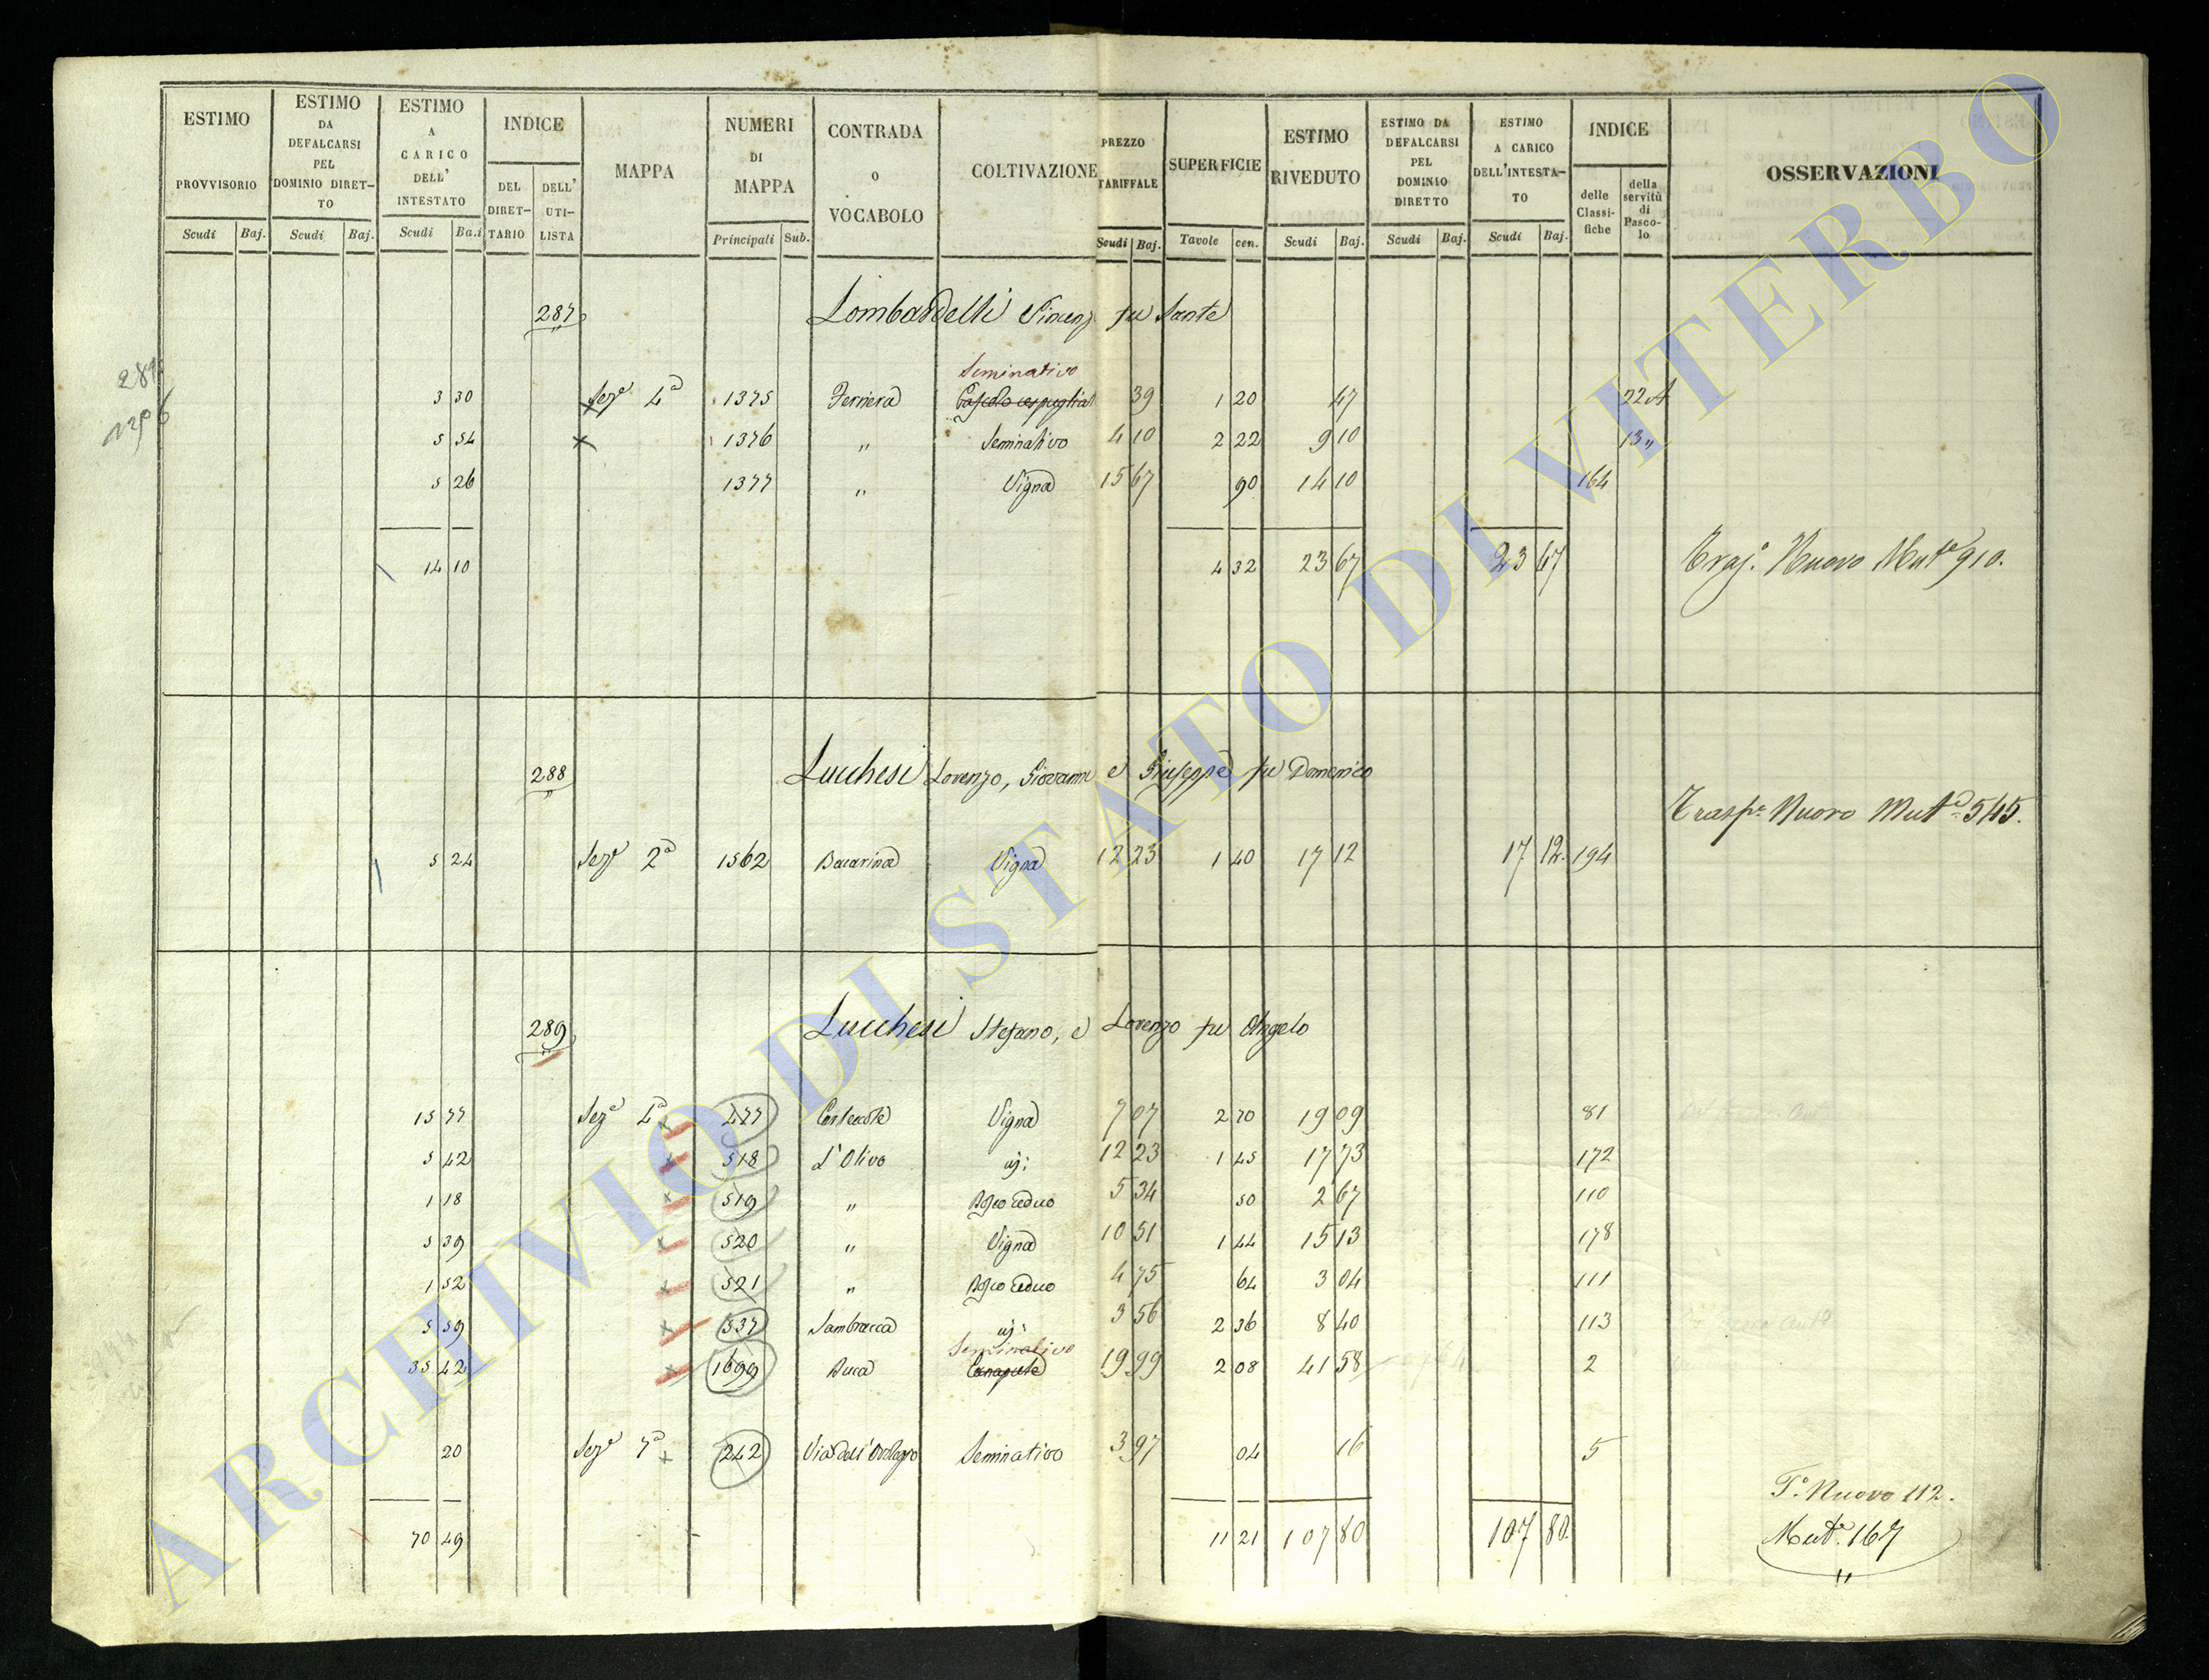 ESTIMO PROVVISORIO Scudi Baj.
ESTIMO DA DEFALCARSI PEL DOMINIO DIRETTO Scudi Baj.
ESTIMO A CARICO DELL' INTESTATO Scudi Ba.i
INDICE DEL DIRETTARIO DELL' UTILISTA
MAPPA
NUMERI DI MAPPA Principali Sub.
CONTRADA o VOCABOLO
COLTIVAZIONE
PREZZO TARIFFALE Scudi Baj.
SUPERFICIE Tavole cen.
ESTIMO RIVEDUTO Scudi Baj.
ESTIMO DA DEFALCARSI PEL DOMINIO DIRETTO Scudi Baj.
ESTIMO A CARICO DELL'INTESTATO Scudi Baj.
INDICE delle Classifiche della servitù di Pascolo
OSSERVAZIONI
287 Lombardelli Vincenz fu Sante
Seminativo
3 30 Seze 4a 1375 39 1 20 47 22 A
5 54 1376 " Seminativo 4 10 2 22 9 10 13 "
5 26 1377 " Vigna 15 67 90 14 10 164
14 10 4 32 23 67 23 67 Nuovo Mut.e 910.
288 Lucchesi Lorenzo, Giovanni e Giuseppe fu Domenico
Trasp.e Nuovo Mut.e 545.
5 24 Seze 2a 1562 Bacarina Vigna 12 23 1 40 17 12 17 12. 194
289 Lucchesi Stefano, e Lorenzo fu Angelo
15 77 Seze 4a 477 Vigna 7 07 2 70 19 09 81
5 42 518 L'Olivo 12 23 1 45 17 73 172
1 18 519 " Bosco Ceduo 5 34 50 2 67 110
5 39 520 " Vigna 10 51 1 44 15 13 178
1 52 521 " Bosco Ceduo 4 75 64 3 04 111
5 59 537 Sambracca 3 56 2 36 8 40 113
Seminativo
35 42 1699 Buca Canapule 19 99 2 08 41 58 2
20 Seze 242 Seminativo 3 97 04 16 5
T.o Nuovo 112.
70 49 11 21 107 80 107 80. Mut.e 167
ARCHIVIO DI STATO DI VITERBO